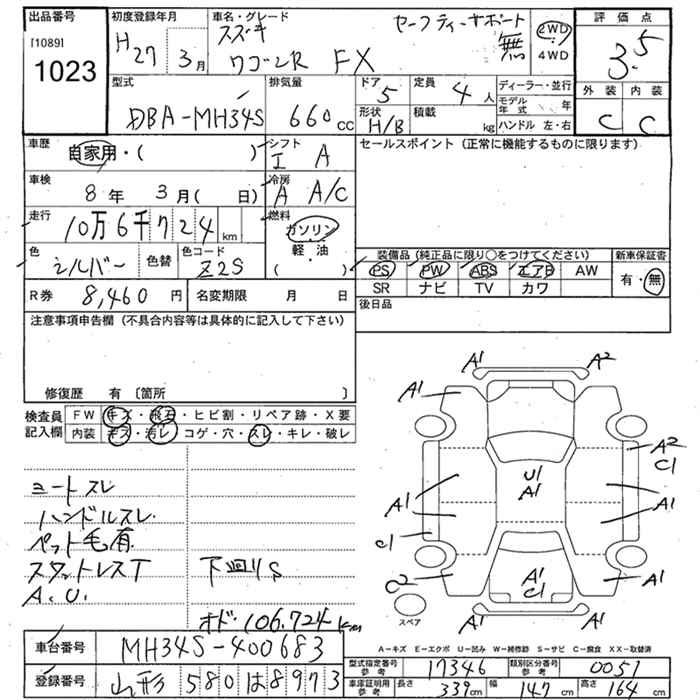 出品番号 初度登録年月 車名・グレード
[1089]
1023
H27 3月 スズキ ワゴンR FX
セーフティーサポート 無
2WD・4WD
評価点
3.5
外装 内装
C C
型式 DBA-MH34S
排気量 660cc
ドア 5
定員 4人
ディーラー・並行
モデル年式 年
ハンドル 左・右
形状 H/B
積載 kg
車歴 自家用・( )
シフト I A
セールスポイント (正常に機能するものに限ります)
車検 8年 3月( 日)
冷房 A A/C
走行 10万6千724km
燃料 ガソリン 軽・油 ( )
色 シルバー 色替
色コード Z2S
装備品 (純正品に限り○をつけてください)
新車保証書
PS PW ABS エアB AW
有・無
SR ナビ TV カワ
R券 8,460円
名変期限 月 日
後日品
注意事項申告欄 (不具合内容等は具体的に記入して下さい)
修復歴 有 〔箇所 〕
検査員記入欄
FW キズ・飛石・ヒビ割・リペア跡・X要
内装 キズ・汚レ・コゲ・穴・スレ・キレ・破レ
シートスレ
ハンドルスレ
ペット毛有
スタットレスT
A.U.
下回りS
オド・106,724km
A1 A2
A1
A2
C1
U1
A1
A1 A1
A1 A1
C1
C2 A1
C1
A1
スペア A1 A1
A-キズ E-エクボ U-凹み W-補修跡 S-サビ C-腐食 XX-取替済
車台番号 MH34S-400683
型式指定番号 参考 17346
類別区分番号 参考 0051
登録番号 山形 580 は 8973
車庫証明用 参考 長さ 339cm 幅 147cm 高さ 164cm